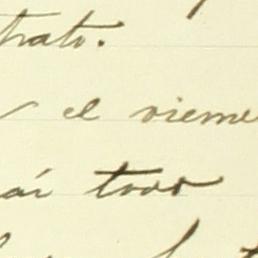 trato.
el vierne
ai todo